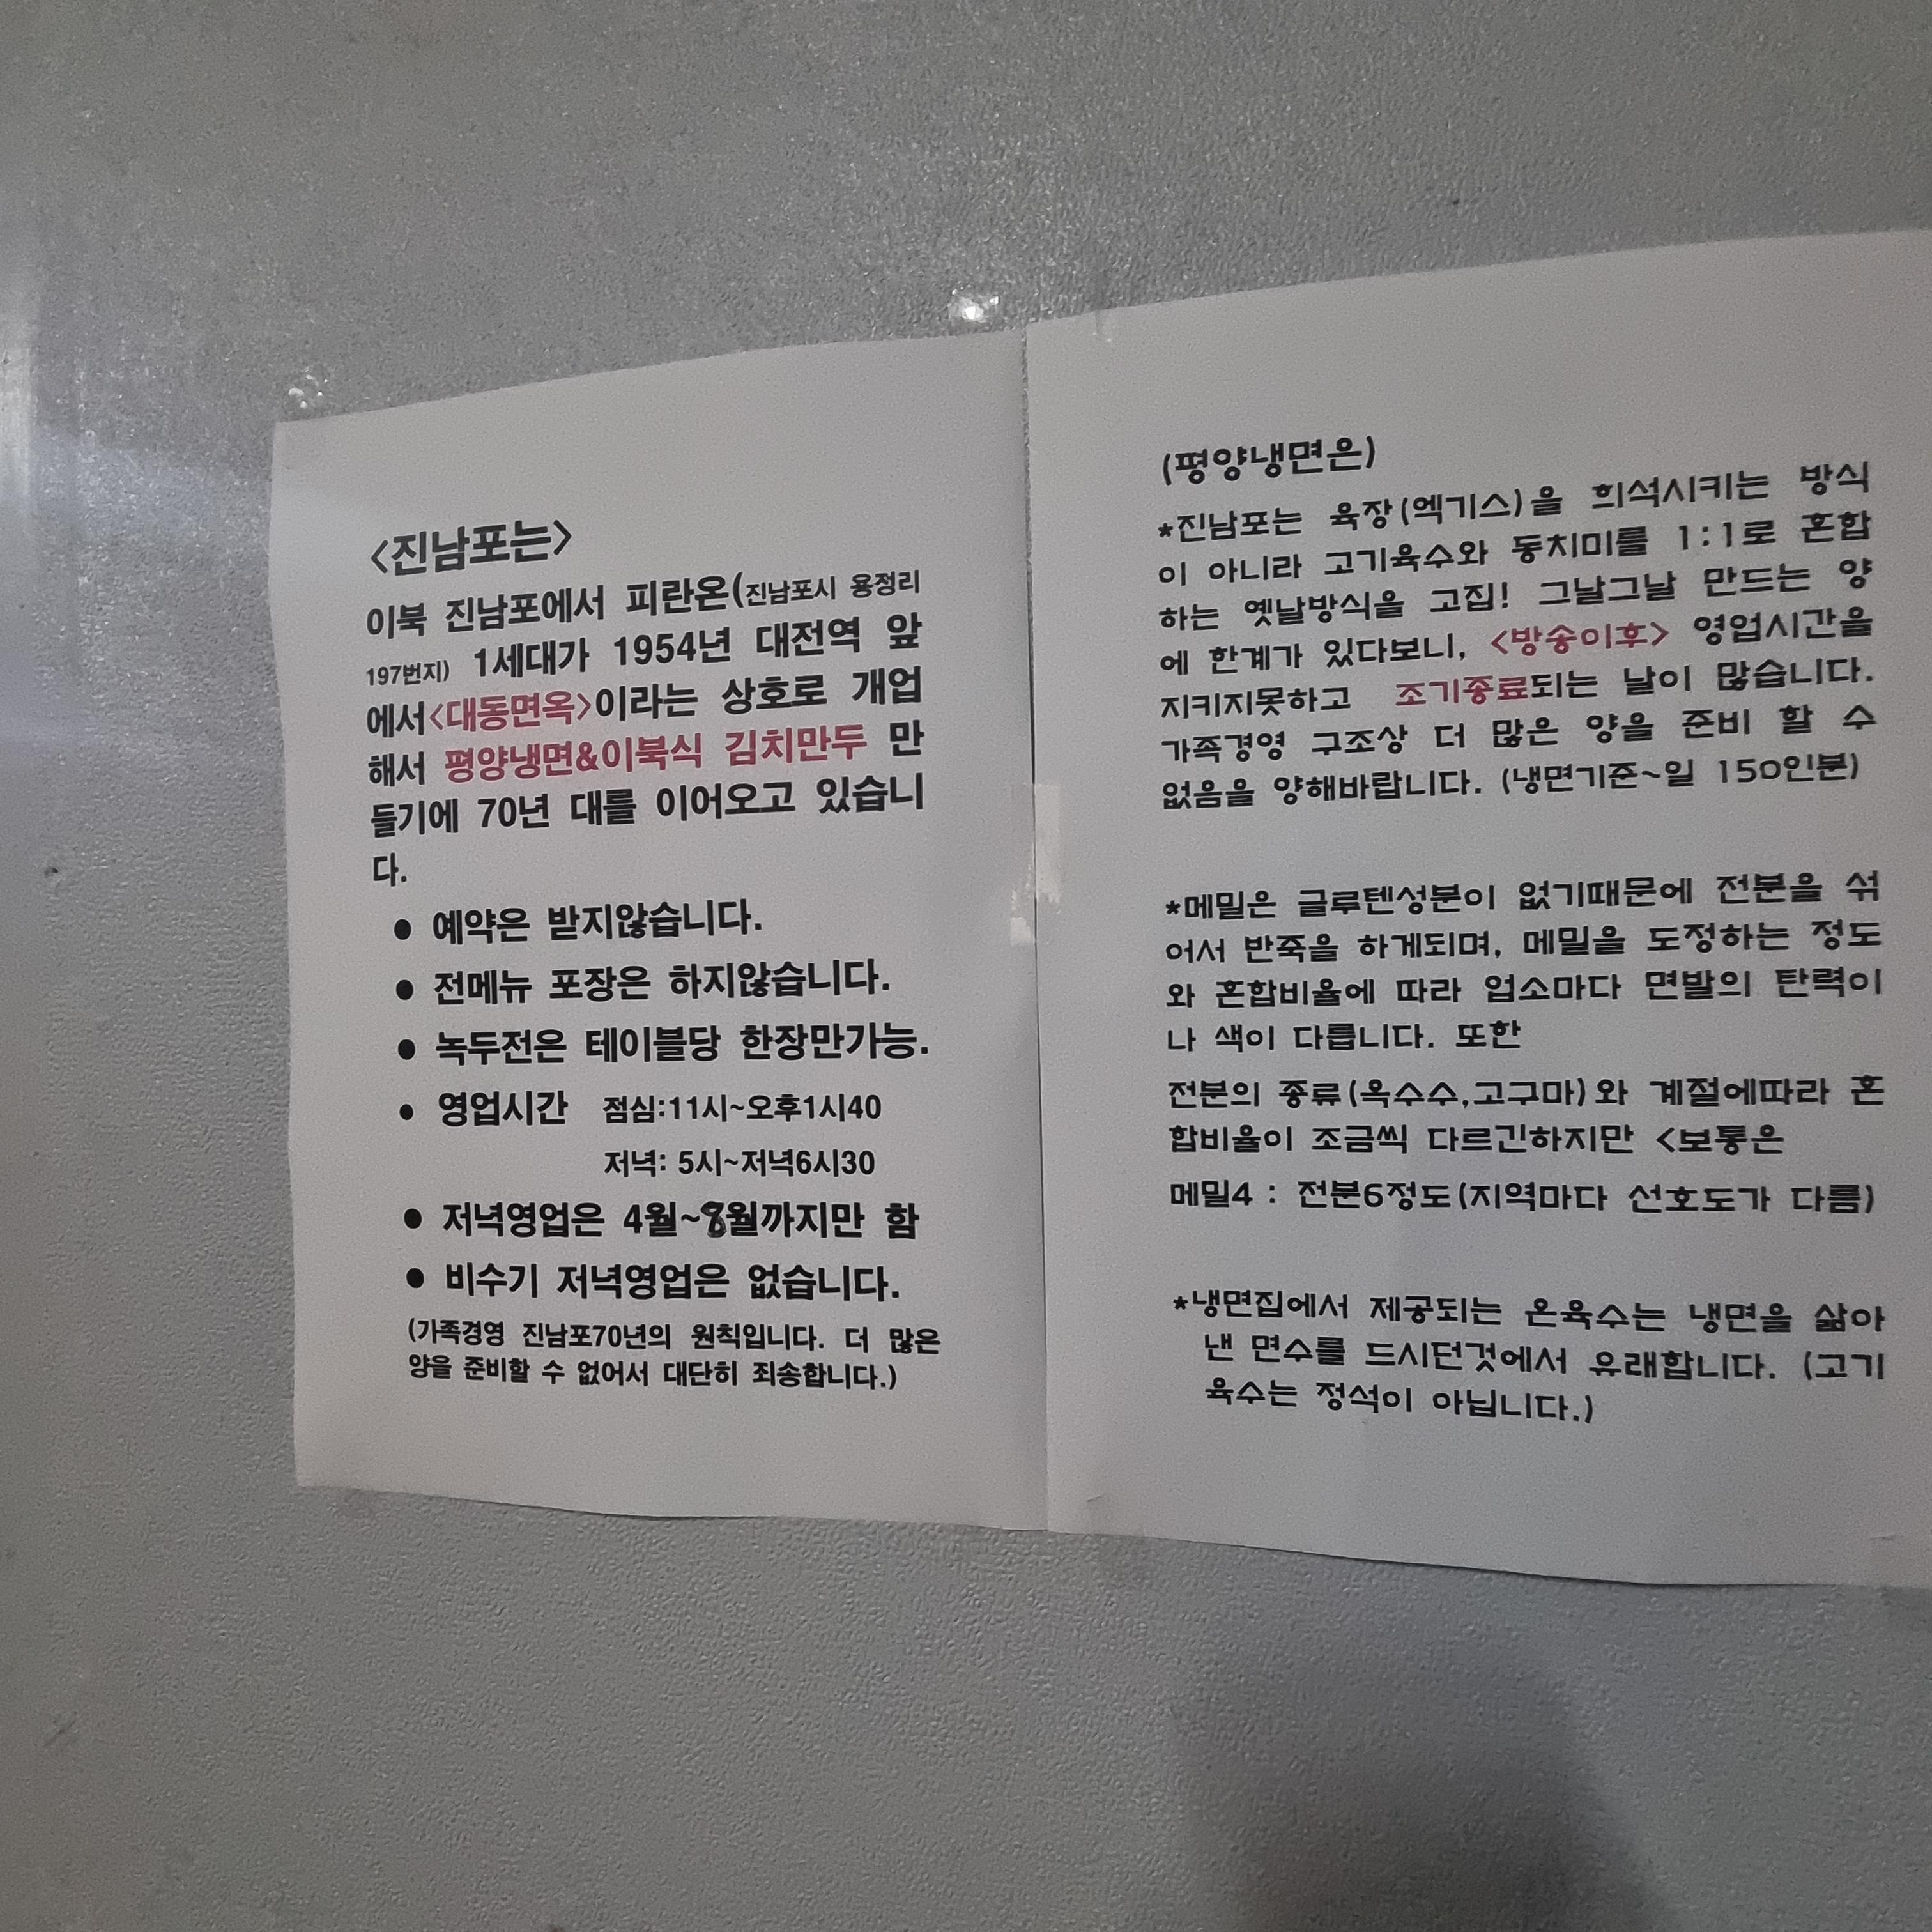 <진남포는>
이북 진남포에서 피란온(진남포시 용정리
197번지) 1세대가 1954년 대전역 앞
에서<대동면옥>이라는 상호로 개업
해서 평양냉면&이북식 김치만두 만
들기에 70년 대를 이어오고 있습니
다.
● 예약은 받지않습니다.
● 전메뉴 포장은 하지않습니다.
● 녹두전은 테이블당 한장만가능.
● 영업시간 점심:11시~오후1시40
저녁: 5시~저녁6시30
● 저녁영업은 4월~8월까지만 함
● 비수기 저녁영업은 없습니다.
(가족경영 진남포70년의 원칙입니다. 더 많은
양을 준비할 수 없어서 대단히 죄송합니다.)
(평양냉면은)
*진남포는 육장(엑기스)을 희석시키는 방식
이 아니라 고기육수와 동치미를 1:1로 혼합
하는 옛날방식을 고집! 그날그날 만드는 양
에 한계가 있다보니, <방송이후> 영업시간을
지키지못하고 조기종료되는 날이 많습니다.
가족경영 구조상 더 많은 양을 준비 할 수
없음을 양해바랍니다. (냉면기준~일 150인분)
*메밀은 글루텐성분이 없기때문에 전분을 섞
어서 반죽을 하게되며, 메밀을 도정하는 정도
와 혼합비율에 따라 업소마다 면발의 탄력이
나 색이 다릅니다. 또한
전분의 종류(옥수수,고구마)와 계절에따라 혼
합비율이 조금씩 다르긴하지만 <보통은
메밀4 : 전분6정도(지역마다 선호도가 다름)
*냉면집에서 제공되는 온육수는 냉면을 삶아
낸 면수를 드시던것에서 유래합니다. (고기
육수는 정석이 아닙니다.)